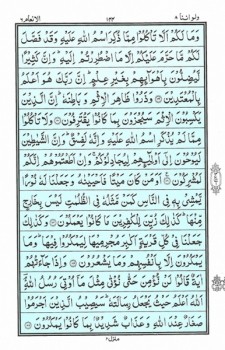 ولواننا ٨ ١٤٣ الانعام ٦
وَمَا لَكُمْ اَلَّا تَاْكُلُوْا مِمَّا ذُكِرَ اسْمُ اللّٰهِ عَلَيْهِ وَقَدْ فَصَّلَ
لَكُمْ مَّا حَرَّمَ عَلَيْكُمْ اِلَّا مَا اضْطُرِرْتُمْ اِلَيْهِ ؕ وَاِنَّ كَثِيْرًا
لَّيُضِلُّوْنَ بِاَهْوَآئِهِمْ بِغَيْرِ عِلْمٍ ؕ اِنَّ رَبَّكَ هُوَ اَعْلَمُ
بِالْمُعْتَدِيْنَ ۝ وَذَرُوْا ظَاهِرَ الْاِثْمِ وَبَاطِنَهٗ ؕ اِنَّ الَّذِيْنَ
يَكْسِبُوْنَ الْاِثْمَ سَيُجْزَوْنَ بِمَا كَانُوْا يَقْتَرِفُوْنَ ۝ وَلَا تَاْكُلُوْا
مِمَّا لَمْ يُذْكَرِ اسْمُ اللّٰهِ عَلَيْهِ وَاِنَّهٗ لَفِسْقٌ ؕ وَاِنَّ الشَّيٰطِيْنَ
لَيُوْحُوْنَ اِلٰٓى اَوْلِيٰٓئِهِمْ لِيُجَادِلُوْكُمْ ۚ وَاِنْ اَطَعْتُمُوْهُمْ اِنَّكُمْ
لَمُشْرِكُوْنَ ۝ اَوَمَنْ كَانَ مَيْتًا فَاَحْيَيْنٰهُ وَجَعَلْنَا لَهٗ نُوْرًا
يَّمْشِيْ بِهٖ فِي النَّاسِ كَمَنْ مَّثَلُهٗ فِي الظُّلُمٰتِ لَيْسَ بِخَارِجٍ
مِّنْهَا ؕ كَذٰلِكَ زُيِّنَ لِلْكٰفِرِيْنَ مَا كَانُوْا يَعْمَلُوْنَ ۝ وَكَذٰلِكَ
جَعَلْنَا فِيْ كُلِّ قَرْيَةٍ اَكٰبِرَ مُجْرِمِيْهَا لِيَمْكُرُوْا فِيْهَا ؕ وَمَا
يَمْكُرُوْنَ اِلَّا بِاَنْفُسِهِمْ وَمَا يَشْعُرُوْنَ ۝ وَاِذَا جَآءَتْهُمْ
اٰيَةٌ قَالُوْا لَنْ نُّؤْمِنَ حَتّٰى نُؤْتٰى مِثْلَ مَآ اُوْتِيَ رُسُلُ اللّٰهِ ؕ
اَللّٰهُ اَعْلَمُ حَيْثُ يَجْعَلُ رِسَالَتَهٗ ؕ سَيُصِيْبُ الَّذِيْنَ اَجْرَمُوْا
صَغَارٌ عِنْدَ اللّٰهِ وَعَذَابٌ شَدِيْدٌۢ بِمَا كَانُوْا يَمْكُرُوْنَ ۝
منزل ٢